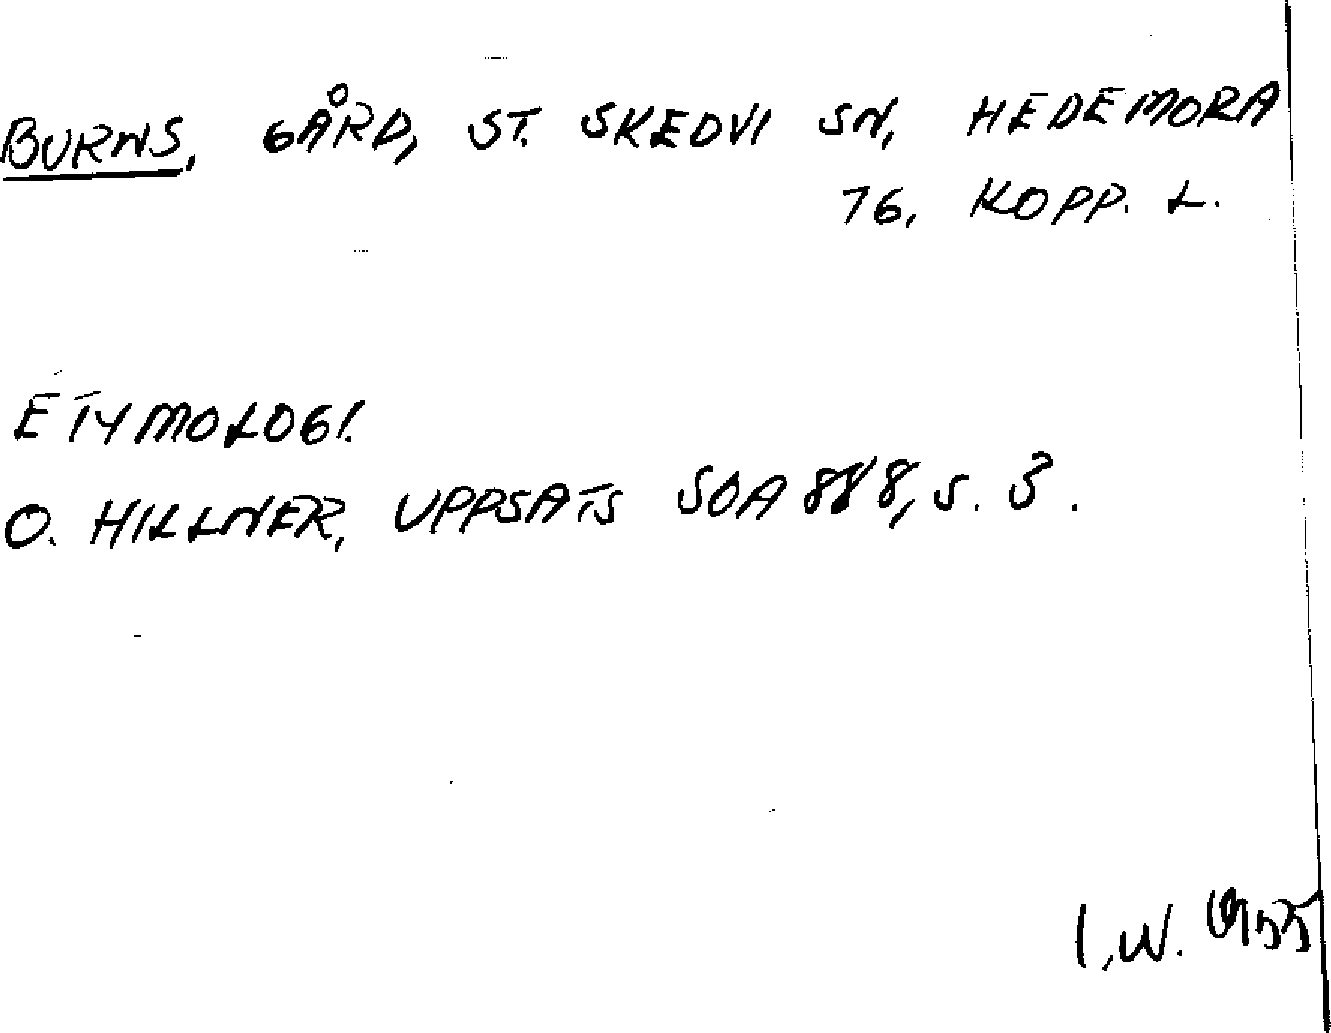 BURNS, GÅRD, ST. SKEDVI SN, HEDEMORA
TG, KOPP. L.
ETYMOLOGI.
O. HILLNER, UPPSATS SOA 888, S. 3.
I.W. 1955